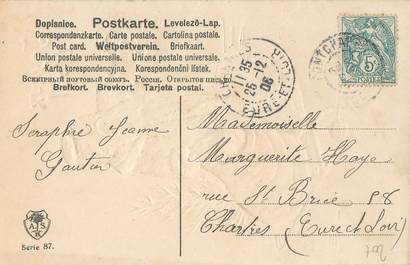 Doplanice. Postkarte. Levelező-Lap.
Correspondenzkarte. Carte postale. Cartolina postale.
Post card. Weltpostverein. Briefkaart.
Union postale universelle. Unione postale universale.
Karta korespondencyjna. Korespondenční lístek.
Всемірный почтовый союзъ. Россія. Открытое письмо.
Brefkort. Brevkort. Tarjeta postal.
CHARTRES
EURE-ET-LOIR
11 35
26-12
06
5c
POSTES
Jeanne
Gautier
Mademoiselle
Marguerite Haye
rue St Brice 58
Chartres (Eure et Loir)
A S
B
Serie 87.